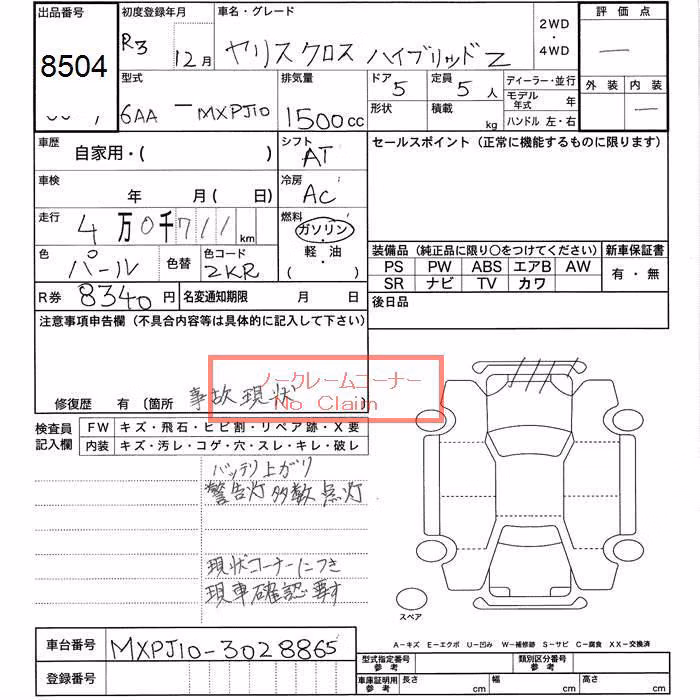 出品番号
8504
初度登録年月
R3 12月
車名・グレード
ヤリス クロス ハイブリッド Z
2WD
・
4WD
評価点
—
外装 内装
—
型式
6AA — MXPJ10
排気量
1500cc
ドア 5
形状
定員 5 人
積載 kg
ディーラー・並行
モデル年式 年
ハンドル 左・右
車歴
自家用・( )
シフト
AT
セールスポイント(正常に機能するものに限ります)
車検
年 月(日)
冷房
AC
走行
4万0千711km
燃料
ガソリン・
軽・油
( )
色
パール
色替
色コード
2KR
装備品(純正品に限り○をつけてください)
新車保証書
PS PW ABS エアB AW
SR ナビ TV カワ
有・無
R券 8340円
名変通知期限 月 日
後日品
注意事項申告欄(不具合内容等は具体的に記入して下さい)
ノークレームコーナー
No Claim
修復歴 有 〔箇所 事故現状
検査員
記入欄
FW キズ・飛石・ヒビ割・リペア跡・X要
内装 キズ・汚レ・コゲ・穴・スレ・キレ・破レ
バッテリ上がり
警告灯多数点灯
現状コーナーにつき
現車確認要す
スペア
A−キズ E−エクボ U−凹み W−補修跡 S−サビ C−腐食 XX−交換済
車台番号
MXPJ10-3028865
登録番号
型式指定番号
参考
類別区分番号
参考
車庫証明用
参考
長さ cm 幅 cm 高さ cm